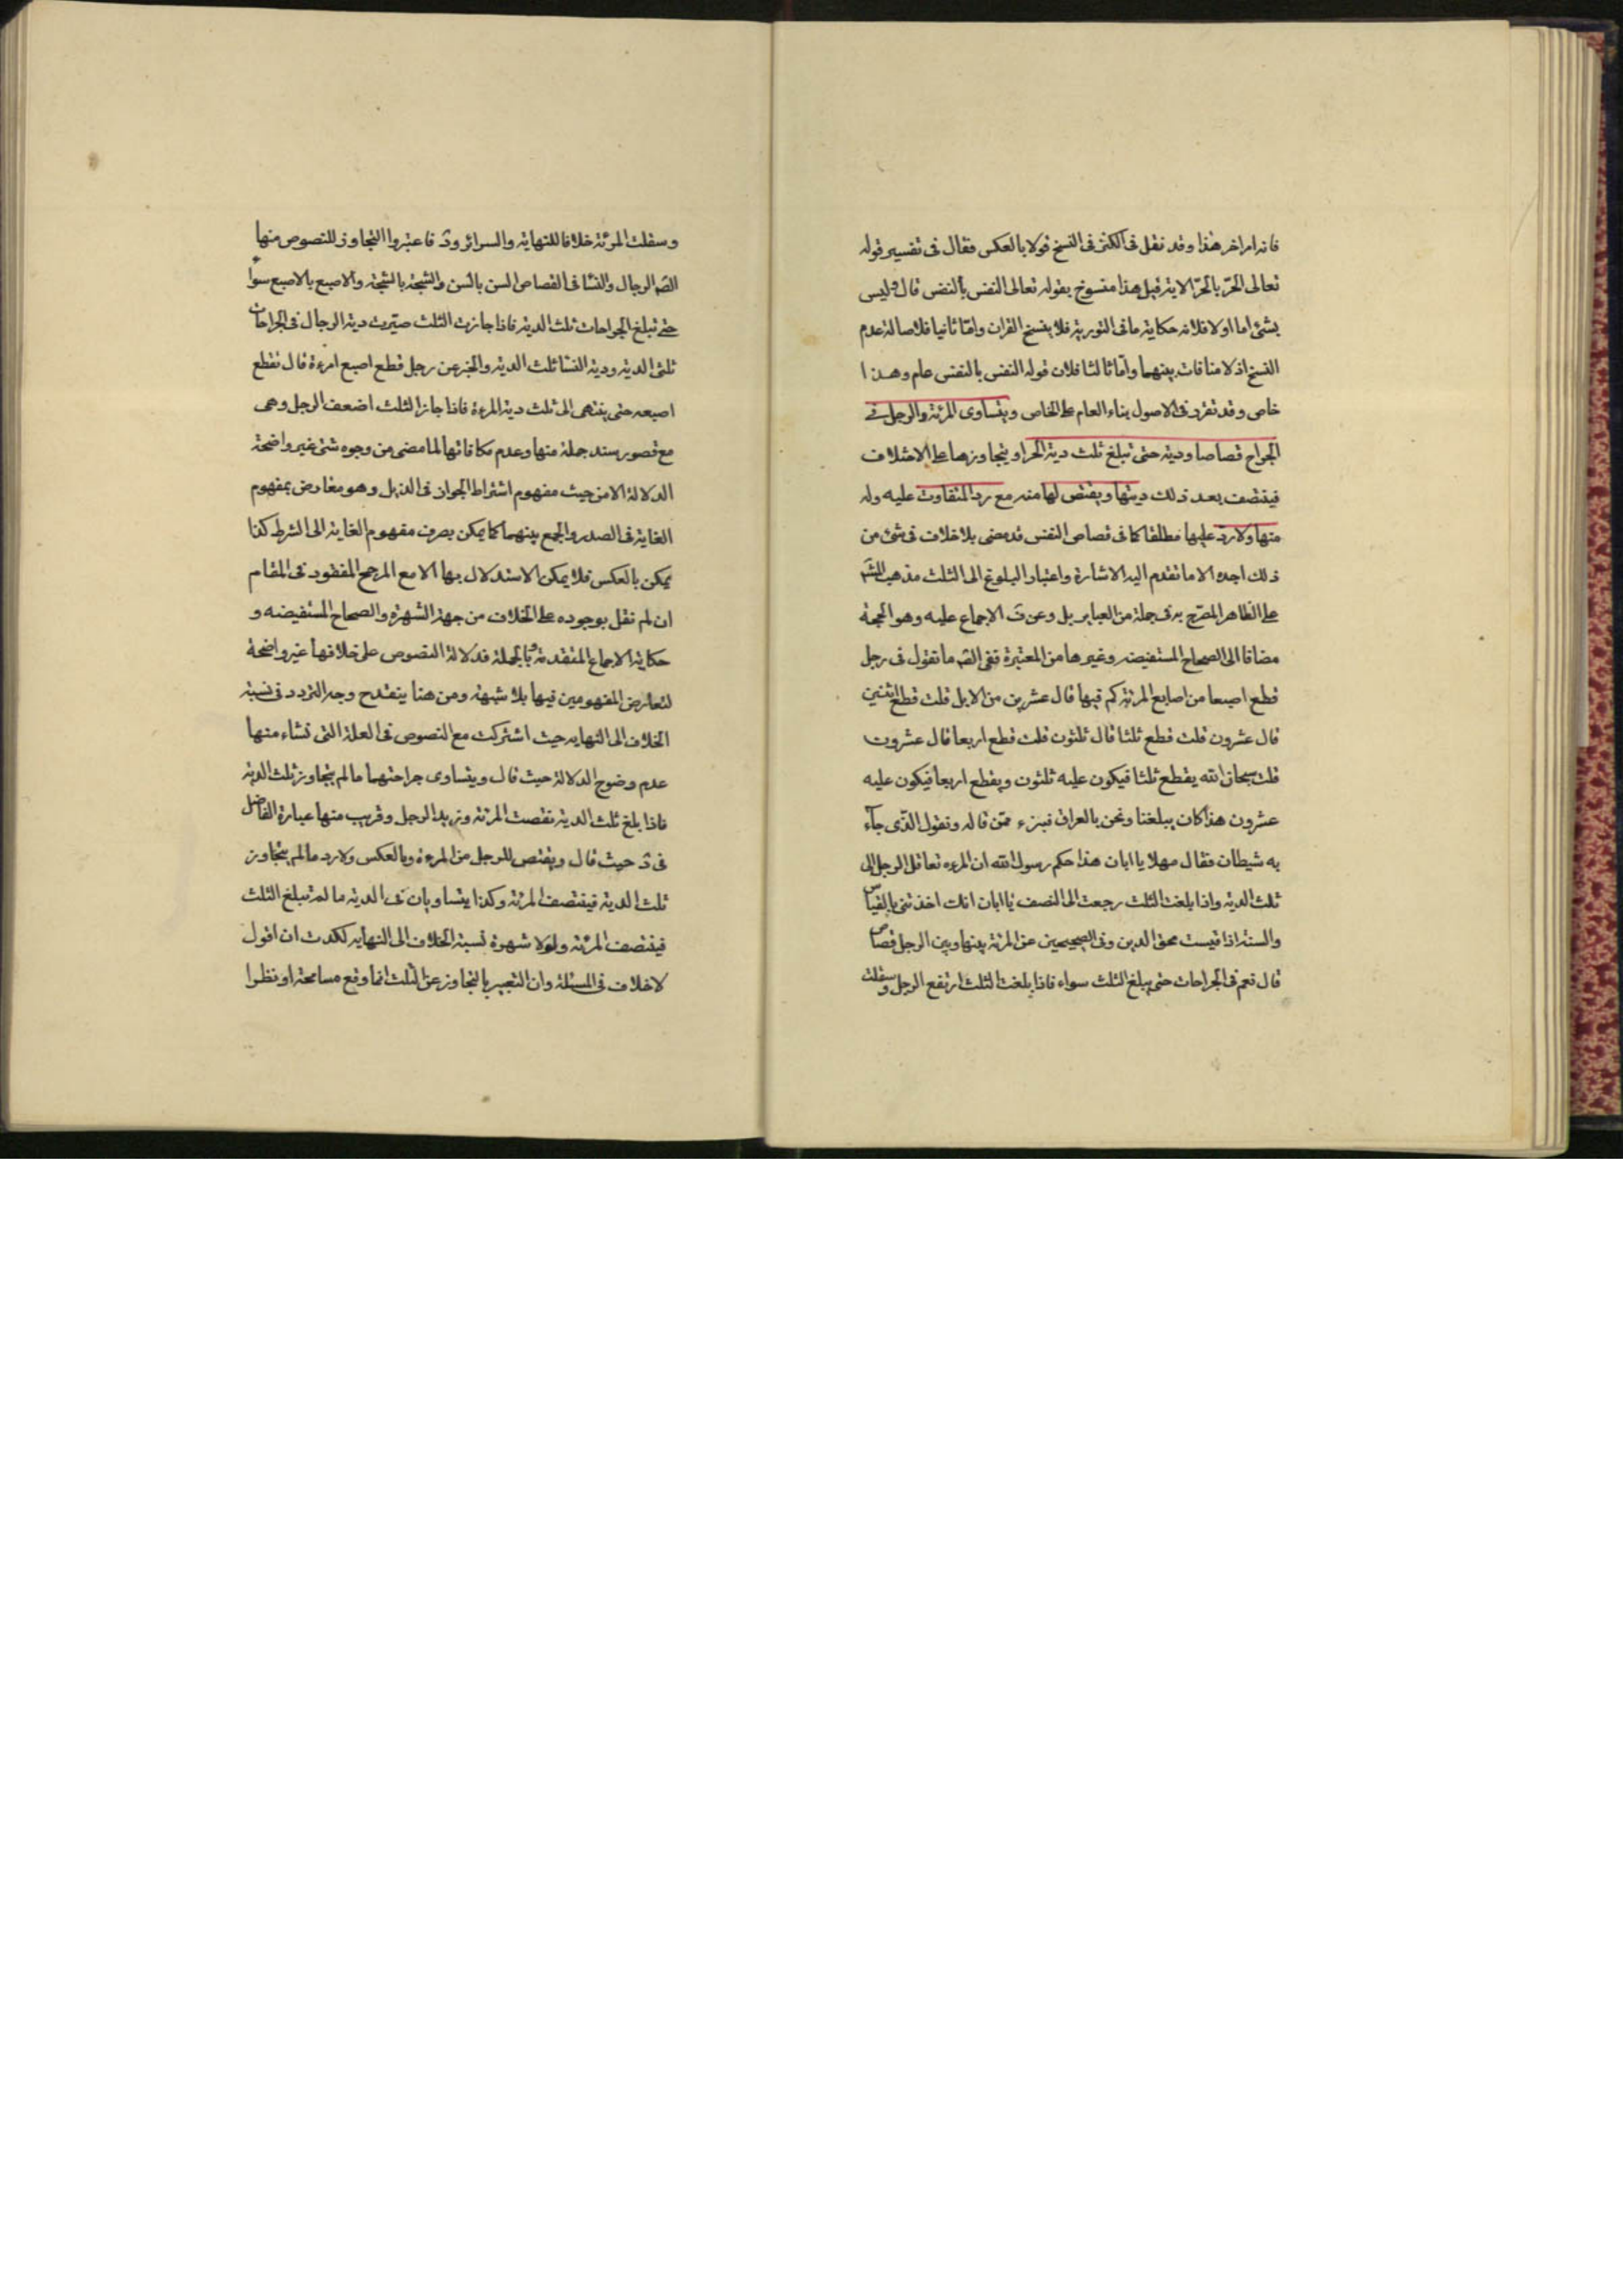 فانه امر اخر هذا وقد نقل فى الكنز فى النسخ قولا بالعكس فقال فى تفسير قوله
تعالى الحرّ بالحرّ الاية قيل هذا منسوخ بقوله تعالى النفس بالنفس قال وليس
بشئ اما اولا فلانه حكاية ما فى التورية فلا ينسخ القران وامّا ثانيا فلاصالة عدم
النسخ اذ لا منافات بينهما وامّا ثالثا فلان قوله النفس بالنفس عام وهذا
خاص وقد تقرر فى الاصول بناء العام على الخاص ويتساوى المرئة والرجل فى
الجراح قصاصا ودية حتى تبلغ ثلث دية الحر او يتجاوزها على الاختلاف
فينتصف بعد ذلك ديتها ويقتص لها منه مع رد التفاوت عليه وله
منها ولا رد عليها مطلقا كما فى قصاص النفس قد مضى بلا خلاف فى شئ من
ذلك اجده الا ما تقدم اليه الاشارة واعتبار البلوغ الى الثلث مذهب
على الظاهر المصرّح به فى جملة من العباير بل وعن ف الاجماع عليه وهو الحجة
مضافا الى الصحاح المستفيضه وغيرها من المعتبرة ففى الصّ ما تقول فى رجل
قطع اصبعا من اصابع المرئة كم فيها قال عشرين من الابل قلت قطع اثنين
قال عشرون قلت قطع ثلثا قال ثلثون قلت قطع اربعا قال عشرون
قلت سبحان الله يقطع ثلثا فيكون عليه ثلثون ويقطع اربعا فيكون عليه
عشرون هذا كان يبلغنا ونحن بالعراق فنبرء ممّن قاله ونقول الذى جآء
به شيطان فقال مهلا يا ابان هذا حكم رسول الله ان المرءه تعاقل الرجل الى
ثلث الدية واذا بلغت الثلث رجعت الى النصف يا ابان انك اخذتنى بالقياس
والسنة اذا قيست محق الدين وفى الصحيحين عن المرئة بينها وبين الرجل قصاص
قال نعم فى الجراحات حتى يبلغ الثلث سواء فاذا بلغت الثلث ارتفع الرجل وسفلت
وسفلت المرئة خلافا للنهاية والسرائر ود فاعتبروا التجاوز للنصوص منها
الصّ الرجال والنسا فى القصاص السن بالسن والشجة بالشجة والاصبع بالاصبع سوآء
حتى تبلغ الجراحات ثلث الدية فاذا جازت الثلث صيّرت دية الرجال فى الجراحات
ثلثى الدية ودية النسا ثلث الدية والخبر عن رجل قطع اصبع امرءة قال تقطع
اصبعه حتى ينتهى الى ثلث دية المرءة فاذا جاز الثلث اضعف الرجل وهى
مع قصور سند جملة منها وعدم مكافاتها لما مضى من وجوه شتى غير واضحة
الدلالة الا من حيث مفهوم اشتراط الجواز فى الذيل وهو معارض بمفهوم
الغاية فى الصدر والجمع بينهما كما يمكن بصرف مفهوم الغاية الى الشرط كذا
يمكن بالعكس فلا يمكن الاستدلال بها الا مع المرجح المفقود فى المقام
ان لم نقل بوجوده على الخلاف من جهة الشهرة والصحاح المستفيضه و
حكاية الاجماع المتقدمة وبالجملة فدلالة النصوص على خلافها غير واضحة
لتعارض المفهومين فيها بلا شبهة ومن هنا ينقدح وجه التردد فى نسبة
الخلاف الى النهايه حيث اشتركت مع النصوص فى العلة التى نشاء منها
عدم وضوح الدلالة حيث قال ويتساوى جراحتهما ما لم يتجاوز ثلث الدية
فاذا بلغ ثلث الدية نقصت المرئة ويزيد الرجل وقريب منها عبارة الفاضل
فى د حيث قال ويقتص للرجل من المرءة وبالعكس ولا رد ما لم يتجاوز
ثلث الدية فينتصف المرئة وكذا يتساويان فى الدية ما لم تبلغ الثلث
فينتصف المرئة ولولا شهرة نسبة الخلاف الى النهايه لكدت ان اقول
لا خلاف فى المسئلة وان التعبير بالتجاوز عن الثلث انما وقع مسامحة او نظرا